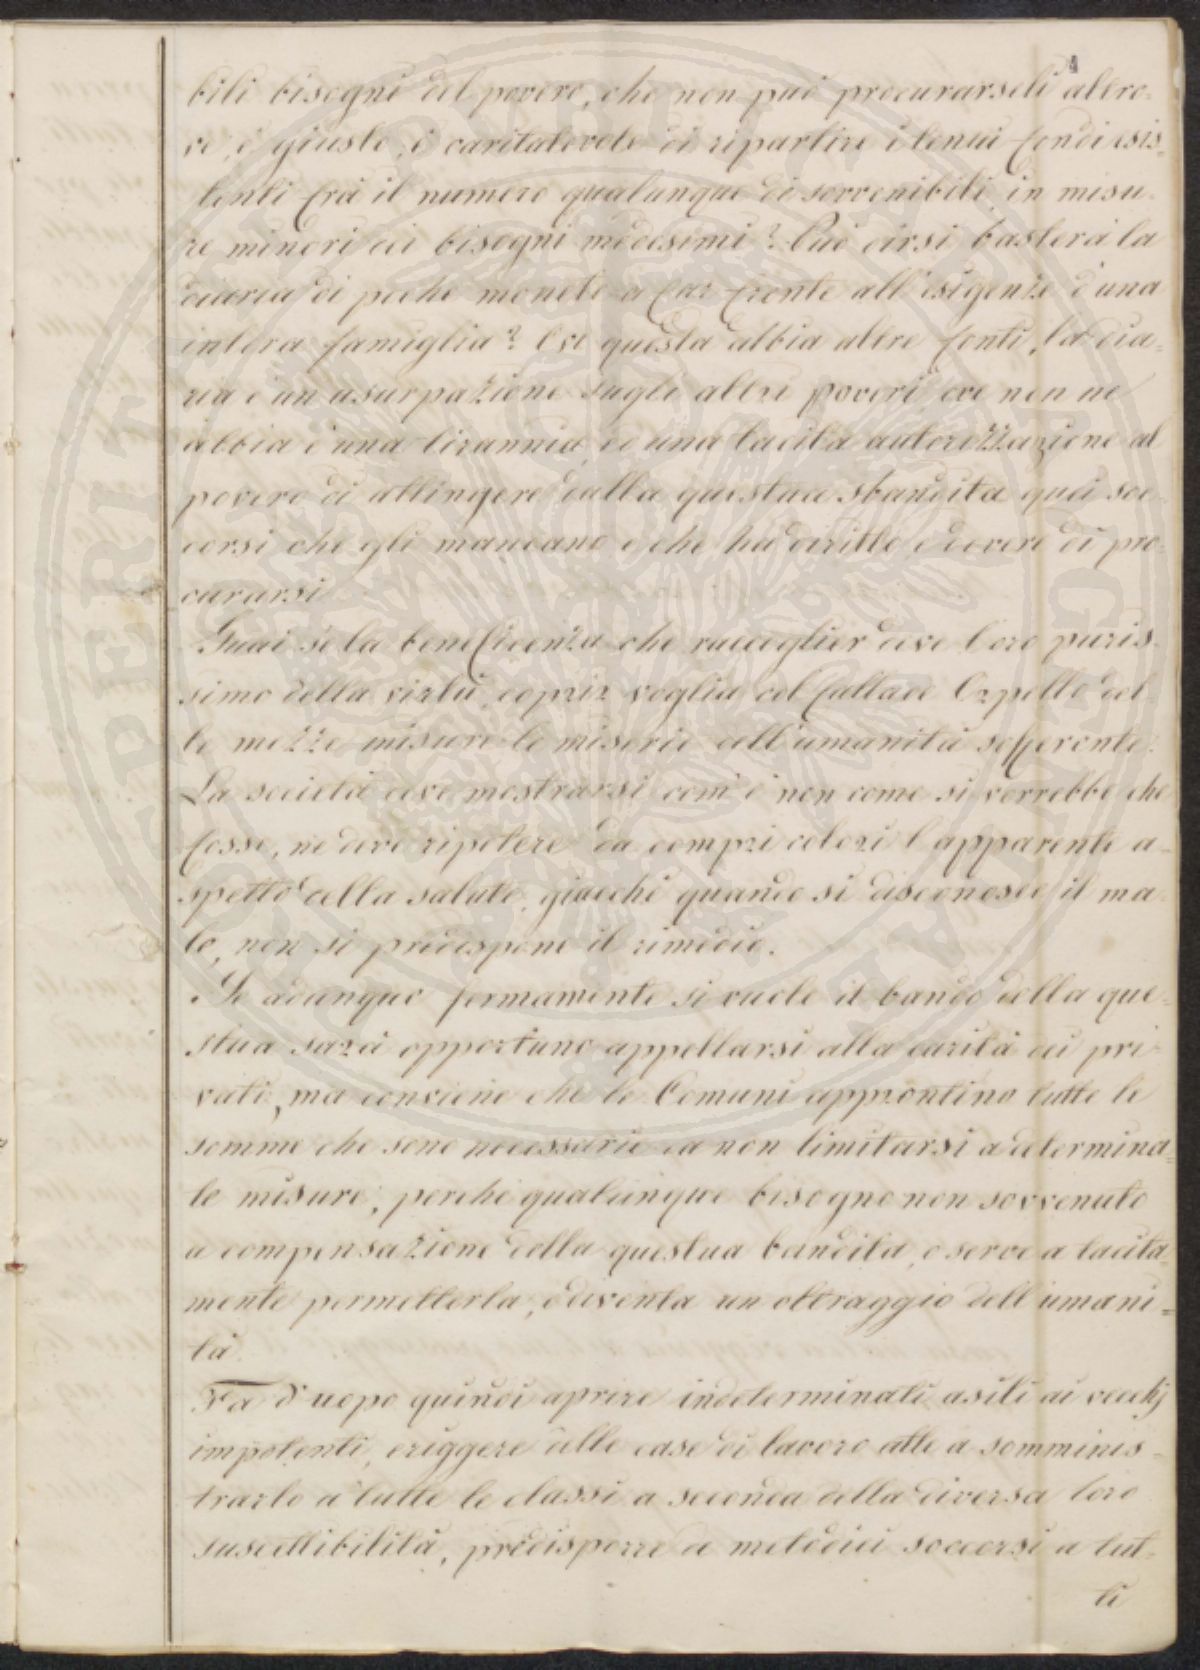 4
bili bisogni del povero, che non può procurarseli altro-
ve, è giusto, è caritatevole di ripartire i tenui fondi esis-
tenti frà il numero qualunque di sovvenibili in misu-
re minori dei bisogni medesimi? Può dirsi basterà la
diaria di poche monete a far fronte all'esigenze d'una
intera famiglia? Ove questa abbia altre fonti, la dia-
ria è un usurpazione sugli altri poveri, ove non ne
abbia è una tirannia, ed una tacita autorizzazione al
povero di attingere dalla questua sbandita quei soc-
corsi che gli mancano e che ha diritto e dovere di pro-
curarsi
Guai se la beneficenza che raccoglier deve l'oro puris-
simo della virtù, coprir voglia col fallace Orpello del-
le mezze misure le miserie dell'umanità sofferente.
La società deve mostrarsi com'è non come si vorrebbe che
fosse, ne deve ripetere da compri colori l'apparente a-
spetto della salute, giacchè quando si disconosce il ma-
le, non si predispone il rimedio.
Se adunque fermamente si vuole il bando della que-
stua sarà opportuno appellarsi alla carità dei pri-
vati, ma conviene che le Comuni approntino tutte le
somme che sono necessarie da non limitarsi a determina-
te misure, perchè qualunque bisogno non sovvenuto
a compensazione della questua bandita, o serve a tacita-
mente permetterla, o diventa un oltraggio dell'umani-
tà.
Fa d'uopo quindi aprire indeterminati asili ai vecchj
impotenti, eriggere delle case di lavoro atte a somminis-
trarlo a tutte le classi a seconda della diversa loro
suscettibilità, predisporre de metodici soccorsi a tut-
ti